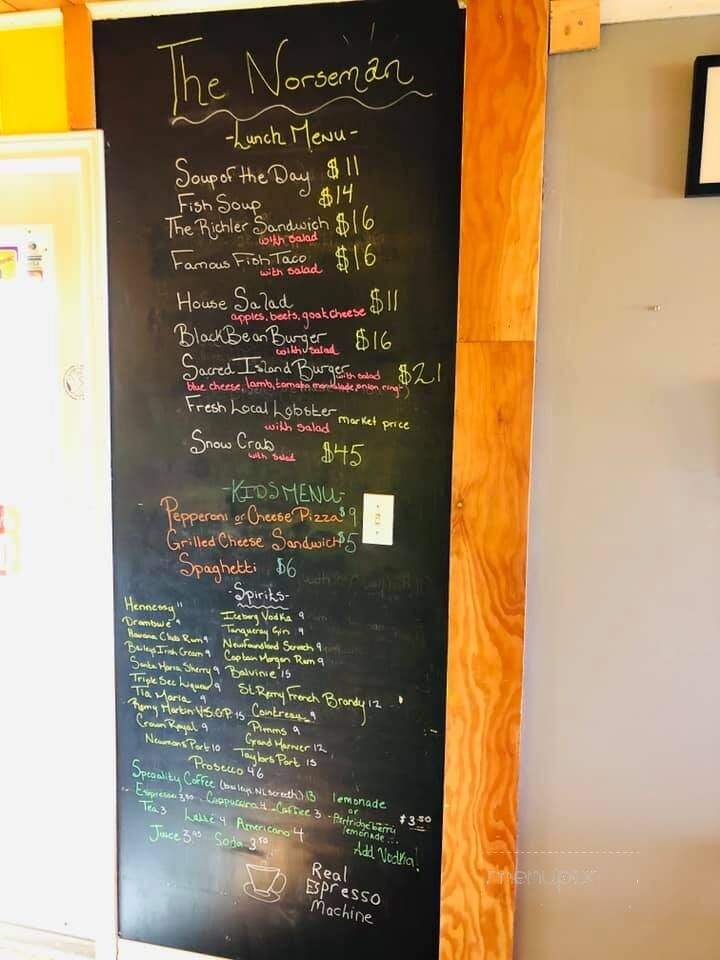 The Norseman
-Lunch Menu-
Soup of the Day $11
Fish Soup $14
The Richler Sandwich $16
with salad
Famous Fish Taco $16
with salad
House Salad $11
apples, beets, goat cheese
Black Bean Burger $16
with salad
Sacred Island Burger with salad $21
blue cheese, lamb, tomato marmalade, onion ring
Fresh Local Lobster market price
with salad
Snow Crab $45
with salad
-KIDS MENU-
Pepperoni or Cheese Pizza $9
Grilled Cheese Sandwich $5
Spaghetti $6
-Spirits-
Hennessy 11 Iceberg Vodka 9
Drambuie 9 Tanqueray Gin 9
Havana Club Rum 9 Newfoundland Screech 9
Baileys Irish Cream 9 Captain Morgan Rum 9
Santa Maria Sherry 9 Balvinie 15
Triple Sec Liqueur 9 St. Remy French Brandy 12
Tia Maria 9
Remy Martin V.S.O.P. 15 Cointreau 9
Crown Royal 9 Pimms 9
Newmans Port 10 Grand Marnier 12
Taylors Port 15
Prosecco 46
Speciality Coffee (baileys, NL screech) 13 lemonade
or
Espresso 3.50 Cappuccino 4 Coffee 3 -Partridgeberry $3.50
Tea 3 Latté 4 Americano 4 lemonade...
Juice 3.95 Soda 3.50 Add Vodka!
Real
Espresso
Machine
menupix